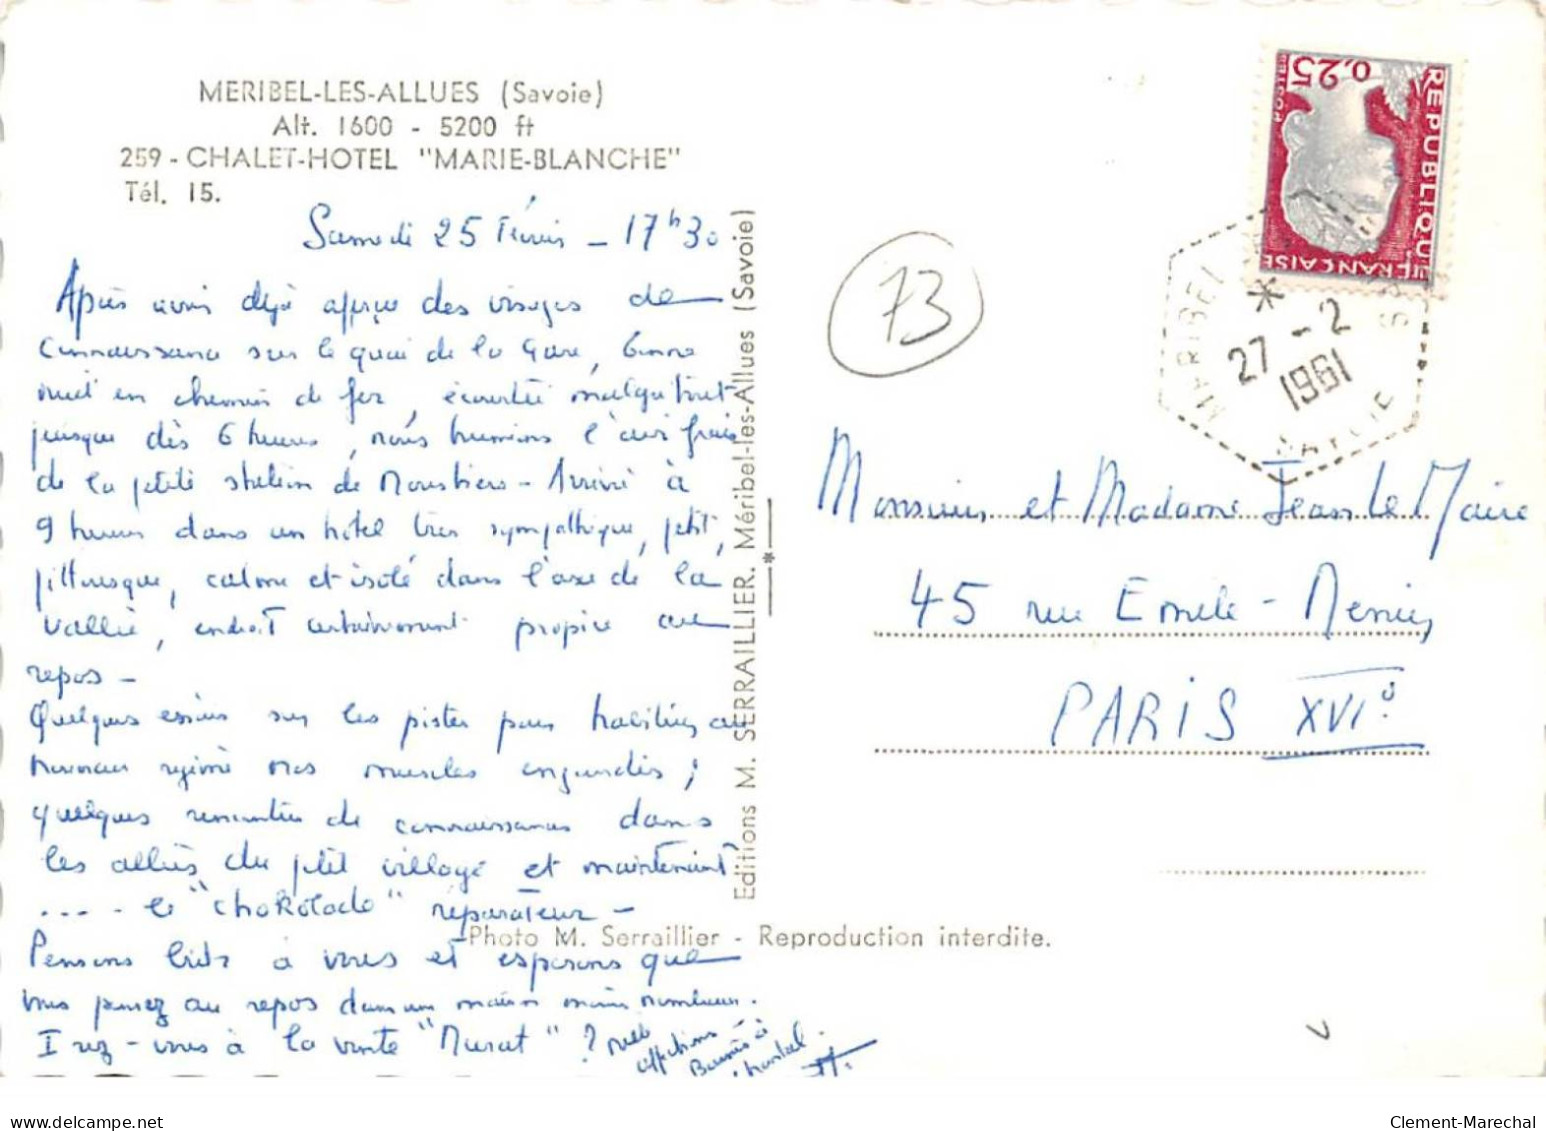 MERIBEL-LES-ALLUES (Savoie)
Alt. 1600 - 5200 ft
259 - CHALET-HOTEL "MARIE-BLANCHE"
Tél. 15.
Samedi 25 Février - 17h30
Après avoir déjà aperçu des visages de
connaissance sur le quai de la Gare, bonne
nuit en chemin de fer, écourtée malgré tout
puisque dès 6 heures, nous humions l'air frais
de la petite station de Moustiers - Arrivé à
9 heures dans un hôtel très sympathique, petit,
pittoresque, calme et isolé dans l'axe de la
vallée, endroit certainement propice au
repos -
Quelques essais sur les pistes pour habituer au
nouveau régime nos muscles engourdis ;
quelques rencontres de connaissances dans
les allées du ptit village et maintenant
.... le "chokolado" réparateur -
Pensons bien à vous et espérons que
vous pensez au repos dans une maison moins nombreuse.
Irez-vous à la vente "Murat" ?
affections -
Baisers à
chantal.
Editions M. SERRAILLIER. Méribel-les-Allues (Savoie)
Photo M. Serraillier - Reproduction interdite.
73
REPUBLIQUE FRANÇAISE
0,25
POSTES
MERIBEL
27 - 2
1961
SAVOIE
Monsieur et Madame Jean Le Maire
45 rue Emile - Menier
PARIS XVIe
Clement-Marechal